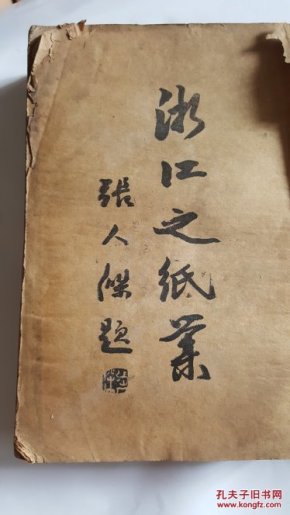 浙江之紙業
張人傑題
孔夫子旧书网
www.kongfz.com